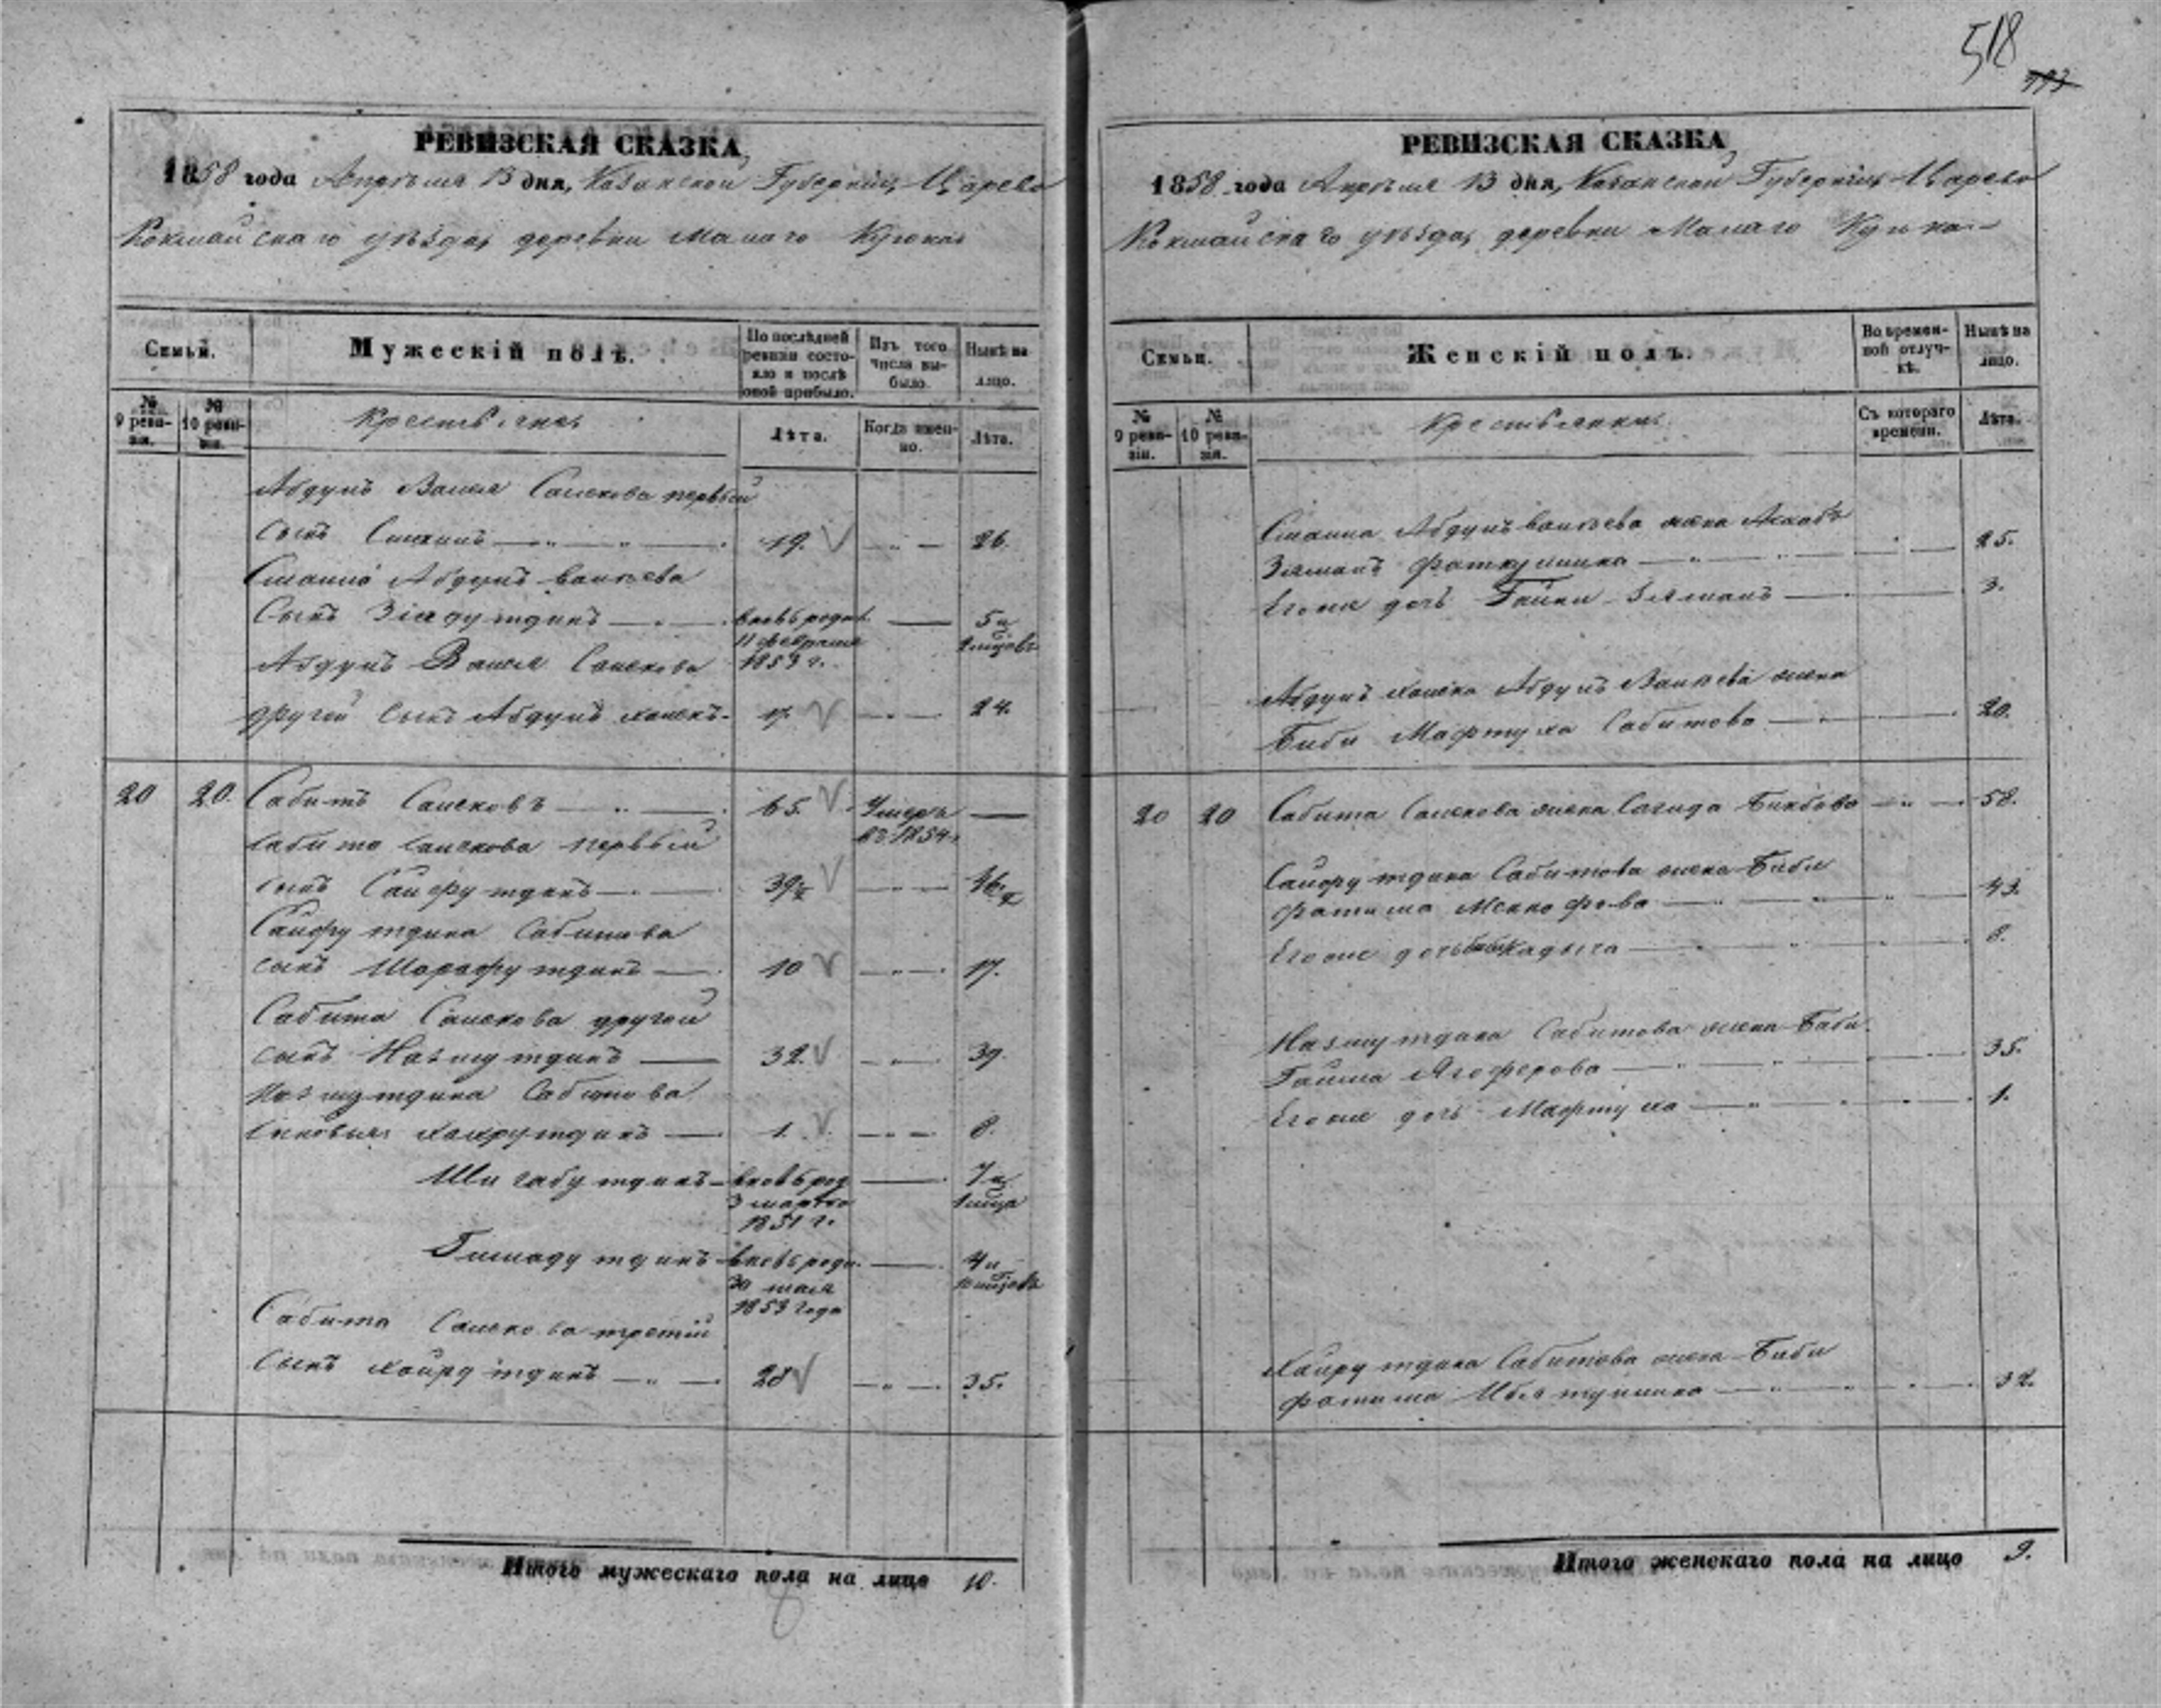 518
РЕВИЗСКАЯ СКАЗКА,
1858 года Апрѣля 13 дня, Казанской Губерніи Царево
Кокшайскаго уѣзда, деревни Малаго Кугюна
Семьи.
Мужескій полъ.
По послѣдней ревизіи состояло и послѣ оной прибыло.
Изъ того числа выбыло.
Нынѣ на лицо.
№ 9 реви-зіи.
№ 10 реви-зіи.
Крестьяне
Лѣта.
Когда имен-но.
Лѣта.
Абдулъ Валея Салекова первый
сынъ 19. 26.
Абдулъ Валѣева
Сынъ Зіядутдинъ вновь рожд. 5 и
11 февраля 2 мѣсяв.
Абдулъ Валея Салекова 1853 г.
другой сынъ Абдулъ Халекъ 17. 24.
20 20. Сабитъ Салековъ 65. Умеръ
въ 1854 г.
Сабита Салекова первый
сынъ Сайфутдинъ 39½ 46½
Сайфутдина Сабитова
сынъ Шарафутдинъ 10 17.
Сабита Салекова другой
сынъ Назмутдинъ 32. 39.
Назмутдина Сабитова
сыновья Хайрутдинъ 1. 8.
Шигабутдинъ вновь род. 7 и
3 марта 1 мѣца
1851 г.
Гимадутдинъ вновь родн. 4 и
30 мая 10 мѣсяв.
1853 года
Сабита Салекова третій
Сынъ Хайрутдинъ 28 35.
Итого мужескаго пола на лицо 10.
РЕВИЗСКАЯ СКАЗКА,
1858 года Апрѣля 13 дня, Казанской Губерніи Царево
Кокшайскаго уѣзда, деревни Малаго Кугюна
Семьи.
Женскій полъ.
Во времен-ной отлуч-кѣ.
Нынѣ на лицо.
№ 9 реви-зіи.
№ 10 реви-зіи.
Крестьянки
Съ котораго времени.
Лѣта.
Абдулъ Валѣева жена
Зяманъ Фаткуллина 25.
Его же дочь Зяманъ 3.
Абдулъ Халека Абдулъ Валѣева жена
Биби Мафтуха Сабитова 20.
20 20 Сабита Салекова жена Сагида Бикбова 58.
Сайфутдина Сабитова жена Биби
Фатима 43.
Его же дочь Биби Кадыча 8.
Назмутдина Сабитова жена Биби
Гайша Ягоферова 35.
Его же дочь Мафтуха 1.
Хайрутдина Сабитова жена Биби
Фатима Ибятуллина 32.
Итого женскаго пола на лицо 9.